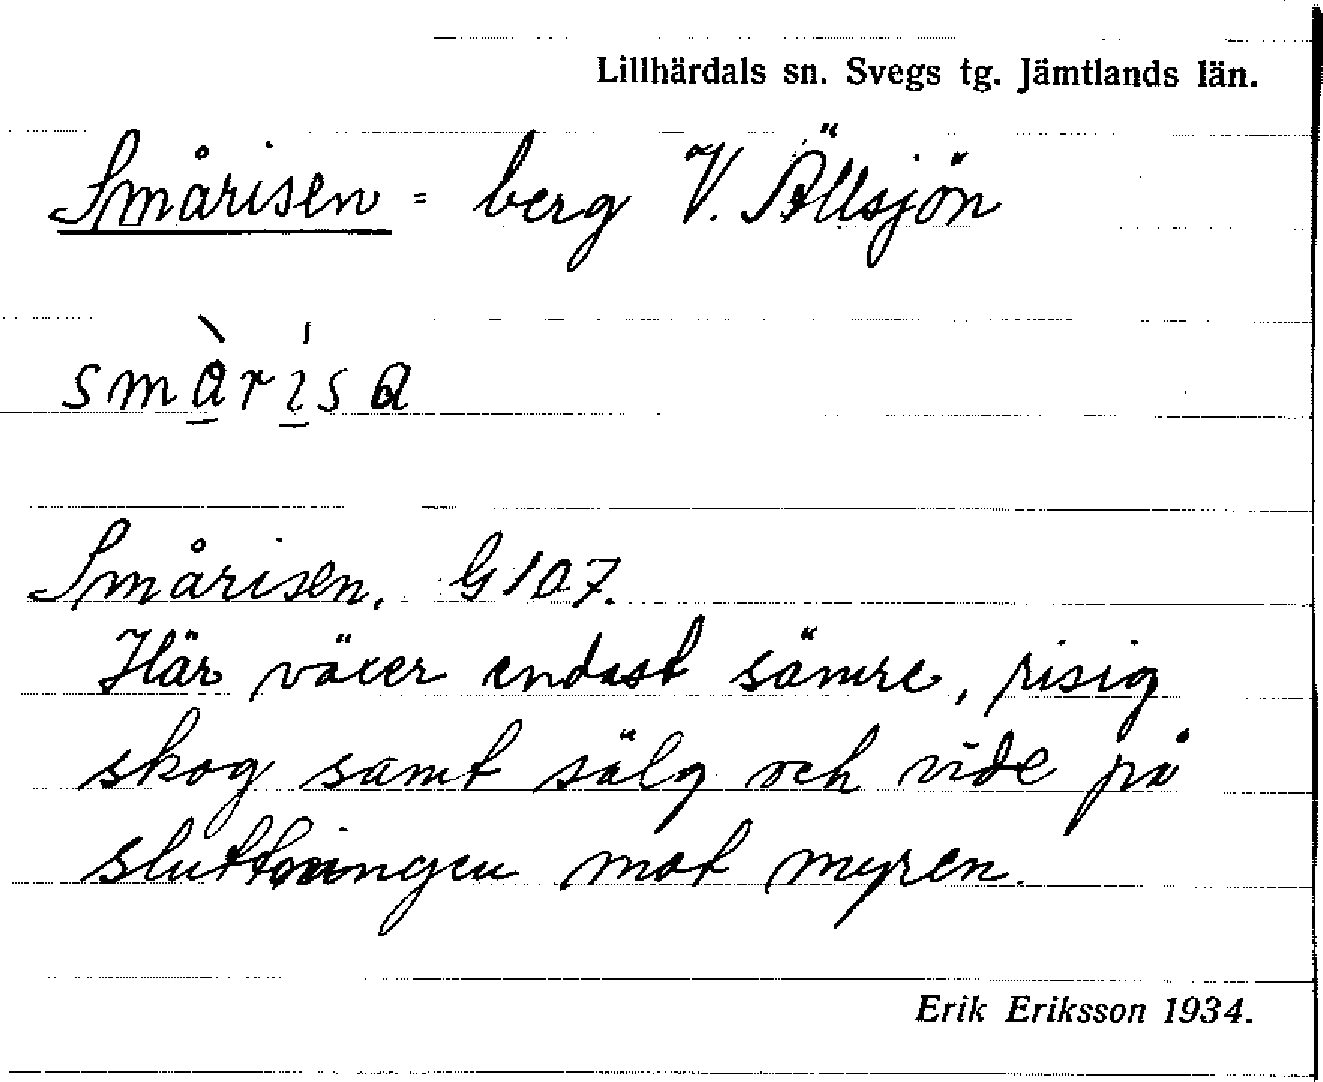 Lillhärdals sn. Svegs tg. Jämtlands län.
Smårisen = berg V. Ällsjön
smàrísa
Smårisen. G 107.
Här växer endast sämre, risig
skog samt sälg och vide på
sluttningen mot myren.
Erik Eriksson 1934.